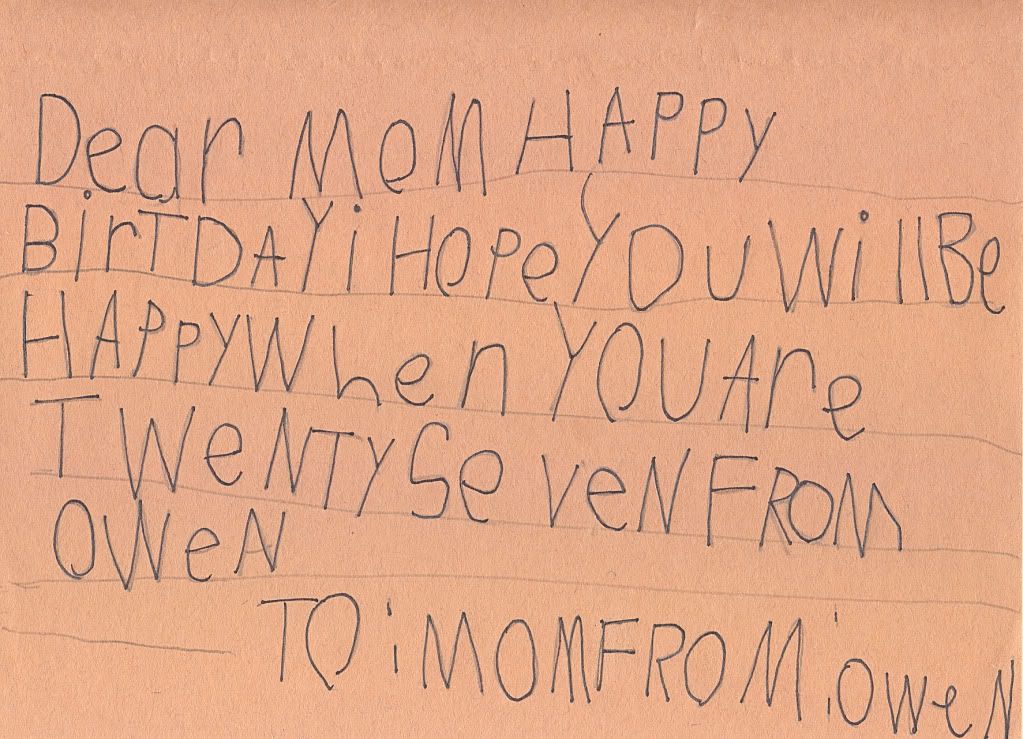 Dear MOM HAPPY
BirTDAY i HOPe YOU Will Be
HAPPY When YOU Are
TWeNTY SeVeN FROM
OWeN
TO : MOM FROM : OWeN